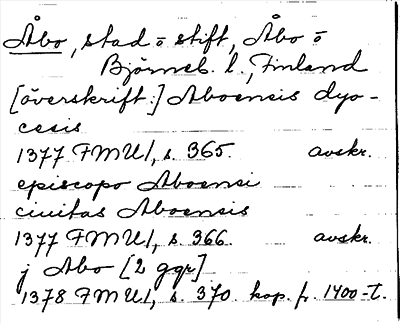 Åbo, stad o stift, Åbo o
Björneb. l., Finland
[överskrift:] Aboensis dyo-
cesis
1377 FMU 1, s. 365. avskr.
episcopo Aboensi
ciuitas Aboensis
1377 FMU 1, s. 366. avskr.
j Abo [2 ggr]
1378 FMU 1, s. 370. kop. fr. 1400-t.